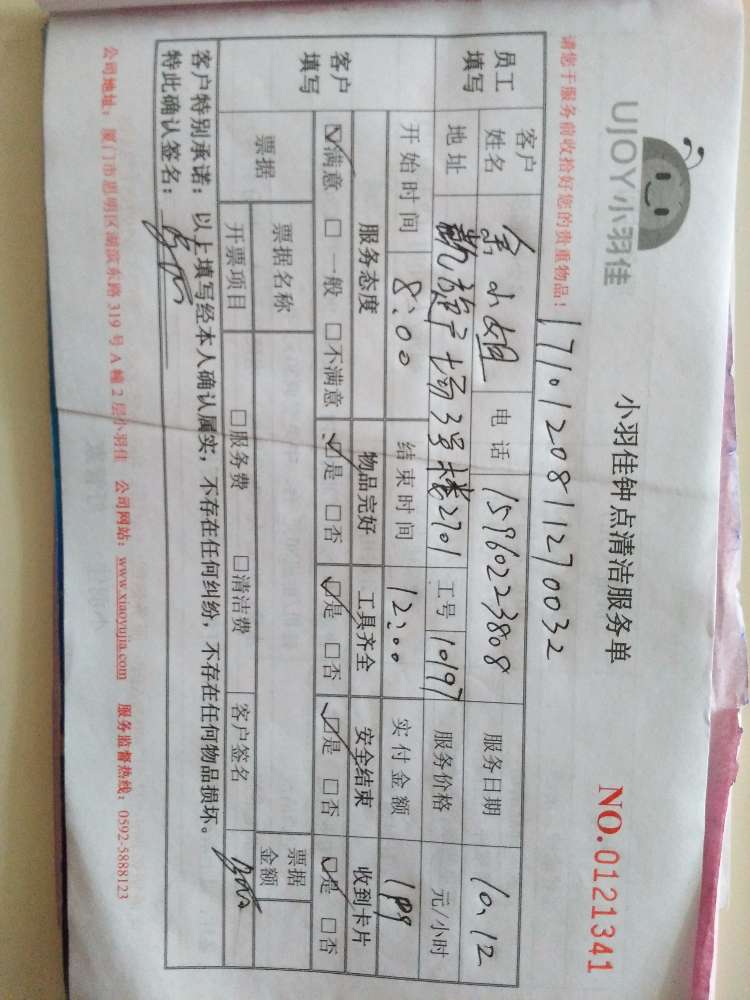 UJOY小羽佳
小羽佳钟点清洁服务单
NO.0121341
请您于服务前收拾好您的贵重物品！
1710120811270032
员工填写 客户姓名 小姐 电话 15960223808 服务日期 10.12
地址 凯旋广场3号楼2701 工号 10197 服务价格 元/小时
客户填写 开始时间 8:00 结束时间 12:00 实付金额 199
服务态度 物品完好 工具齐全 安全结束 收到卡片
☑满意 □一般 □不满意 ☑是 □否 ☑是 □否 ☑是 □否 ☑是 □否
票据 票据名称 票据金额
开票项目 □服务费 □清洁费 客户签名
客户特别承诺：以上填写经本人确认属实，不存在任何纠纷，不存在任何物品损坏。
特此确认签名：
公司地址：厦门市思明区湖滨东路319号A幢2层小羽佳 公司网站：www.xiaoyujia.com 服务监督热线：0592-5888123